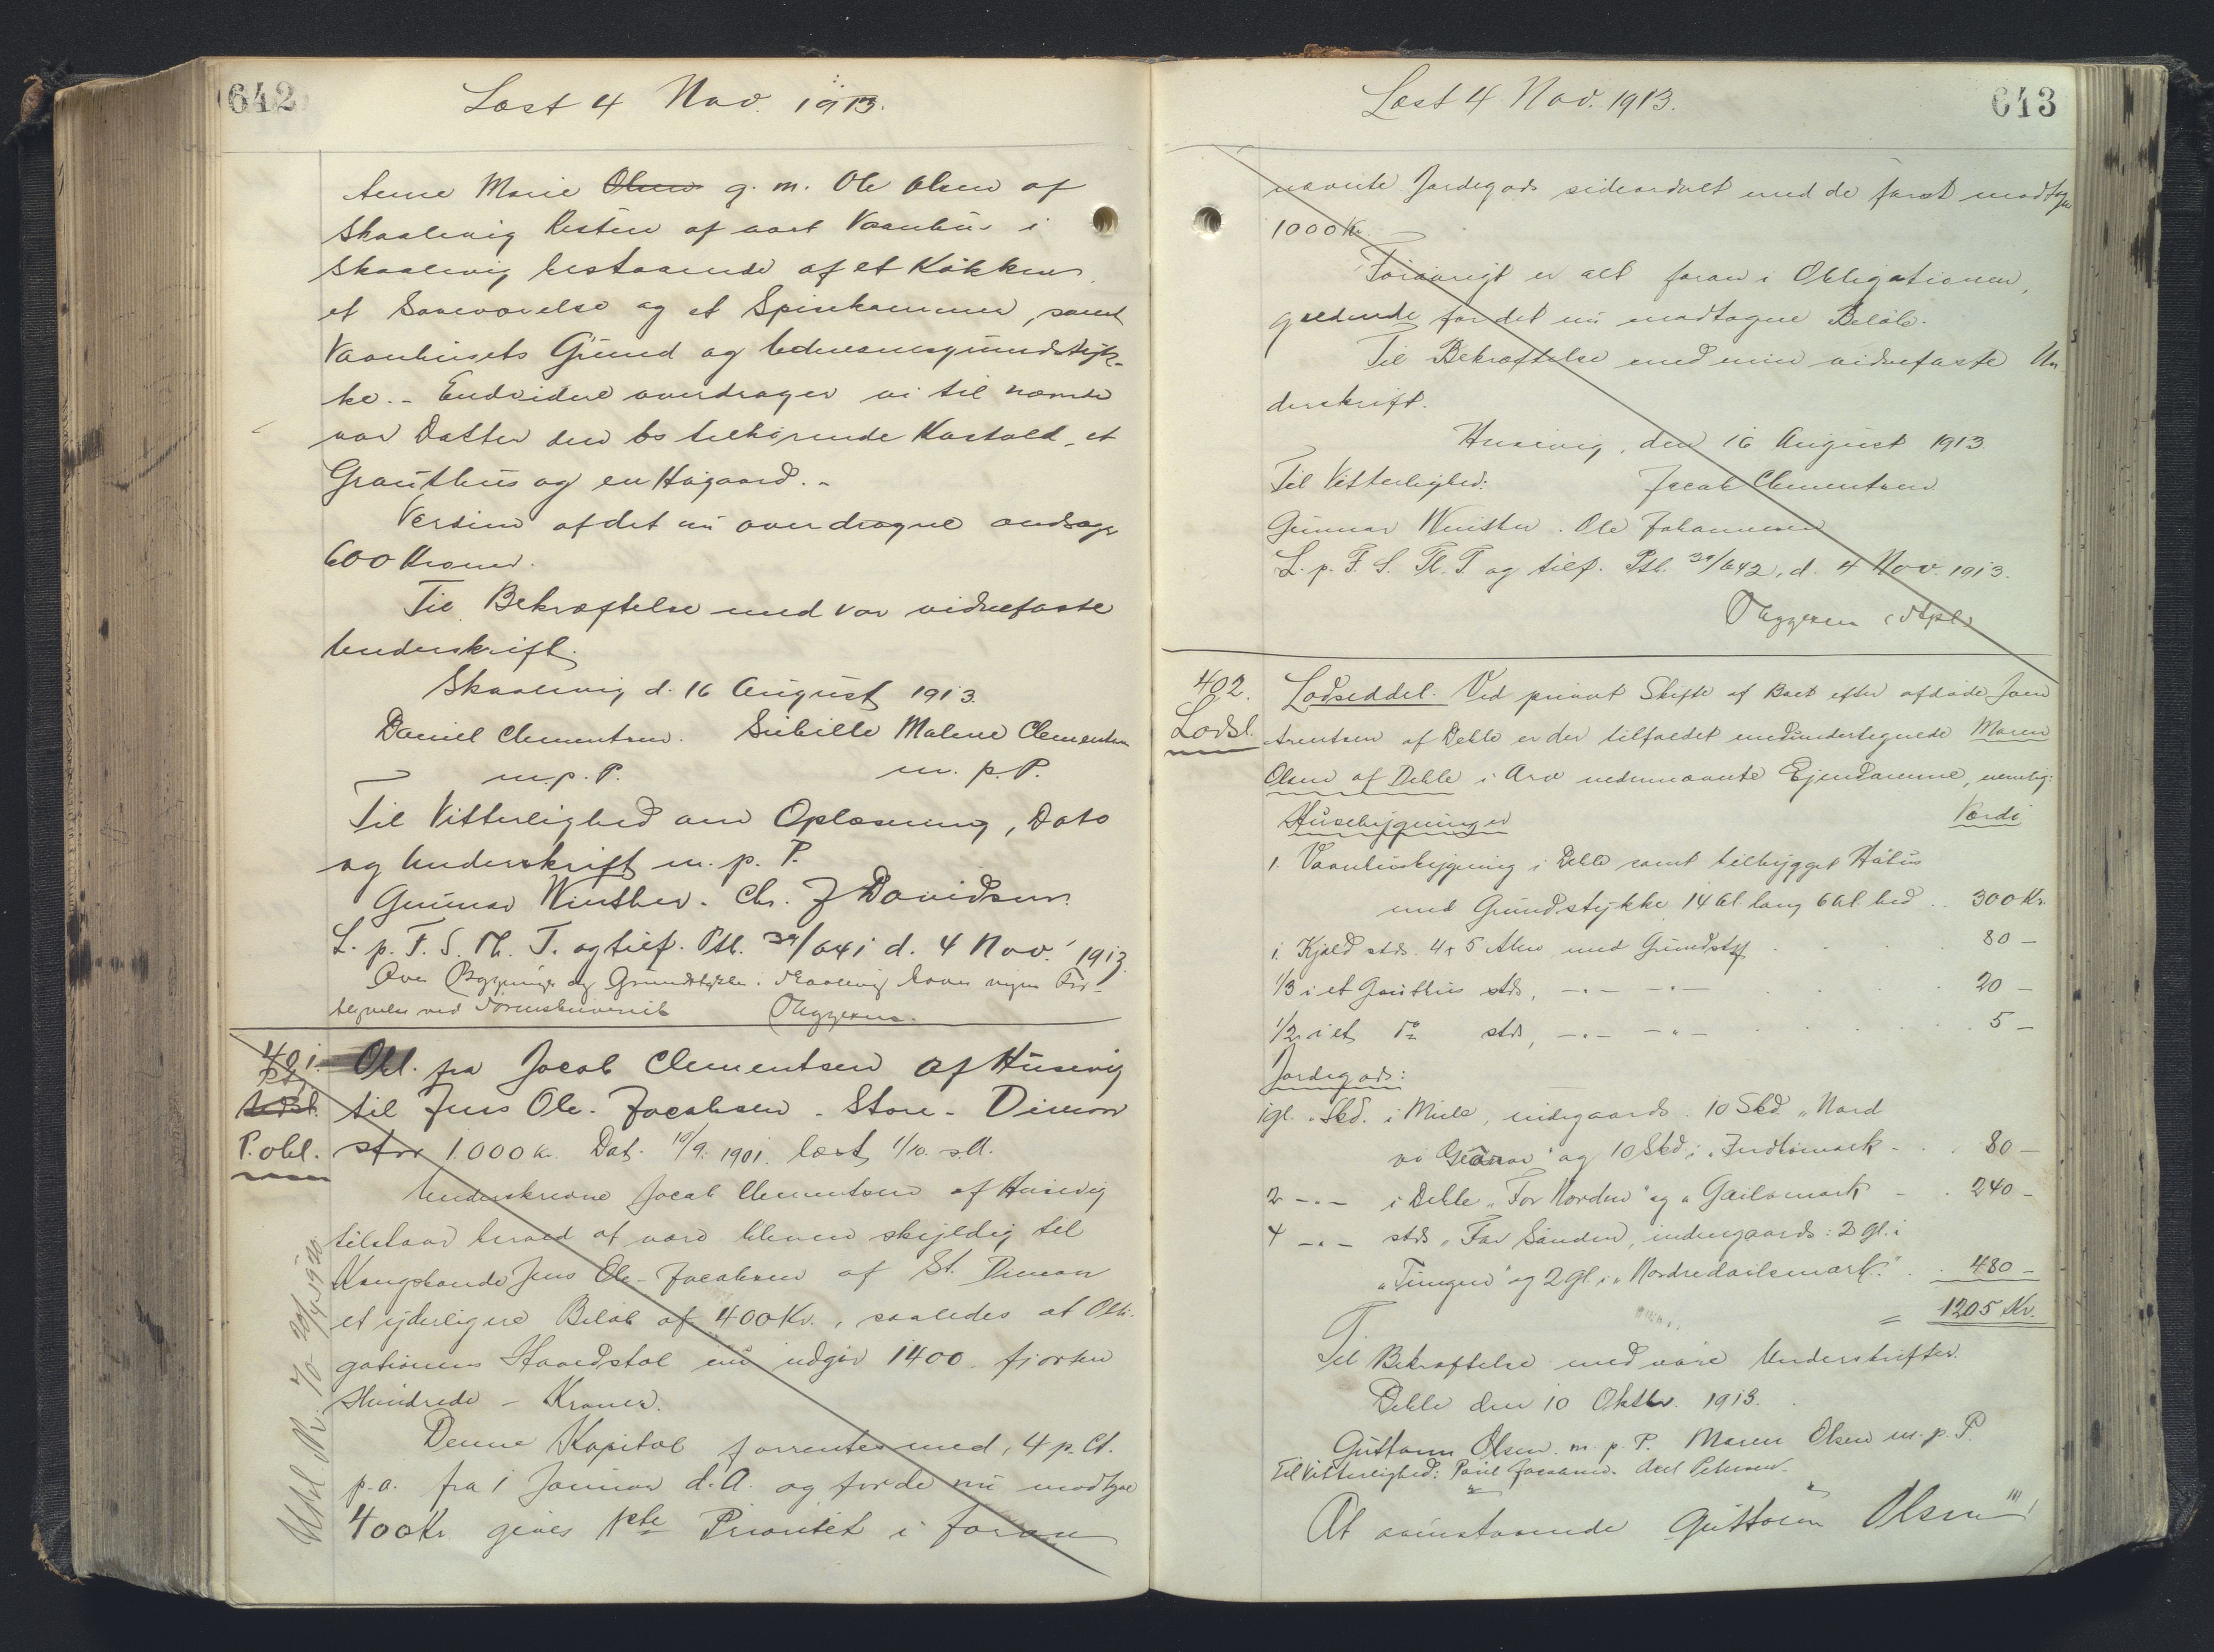 642
Læst 4 Nov. 1913.
Anne Marie Olsen g. m. Ole Olsen af
Skaalevig Resten af vort Vaanhus i
Skaalevig bestaaende af et Køkken,
et Soveværelse og et Spisekammer, samt
Vaanhusets Grund og udenomsgrundstyk-
ke. - Endvidere overdrager vi til nævnte
vor Datter den os tilhørende Kostald, et
Grouthus og en Høgaard. -
Værdien af det nu overdragne andrager
600 Kroner.
Til Bekræftelse med vor vidnefaste
Underskrift.
Skaalevig d. 16 August 1913.
Daniel Clementsen. Sibille Malene Clementsen
m. p. P. m. p. P.
Til Vitterlighed om Oplæsning, Dato
og Underskrift m. p. P.
Gunnar Winther. Chr. J Davidsen.
L. p. F. S. Th. T. og tilf. Ptl. 39/641 d. 4 Nov. 1913.
Over Bygninger og Grundstykke i Skaalevig haves ingen For-
tegnelse ved Sorenskriveriet
401.
Obl. fra Jacob Clementsen af Husevig
til Jens Ole Jacobsen - Store - Dimon
P. obl.
stor 1.000 Kr. Dat. 10/9. 1901. læst 1/10. s. A.
Underskrevne Jacob Clementsen af Husevig
tilstaar herved at være bleven skyldig til
Kongsbonde Jens Ole Jacobsen af St. Dimon
et yderligere Beløb af 400 Kr., saaledes at Obli-
gationens Hovedstol nu udgør 1400 fjorten
Hundrede - Kroner.
Denne Kapital forrentes med 4 p. Ct.
p. a. fra 1 Januar d. A. og for de nu modtgne
400 Kr. gives 1ste Prioritet i foran
643
Læst 4 Nov. 1913.
nævnte Jordegods sideordnet med de først modtagne
1000 Kr.
Forøvrigt er alt foran i Obligationen,
gældende for det nu modtagne Beløb.
Til Bekræftelse med min vidnefaste Un
derskrift.
Husevig, den 16 August 1913.
Til Vitterlighed: Jacob Clementsen
Gunnar Winther. Ole Johannesen
L. p. F. S. Th. T. og tilf. Ptl. 39/642, d. 4 Nov. 1913.
402.
Lodsl.
Lodseddel. Ved privat Skifte af Boet efter afdøde Joen
Arentsen af Deble er der tilfaldet medundertegnede Maren
Olsen af Deble i Arv nedennævnte Ejendomme, nemlig:
Husebygninger Værdi
1. Vaanhusbygning i Deble samt tilbygget Høhus
med Grundstykke 14 Al lang 6 Al. bred . 300 Kr.
1. Kjæld stds. 4 x 5 Alen med Grundstk 80 -
1/3 i et Grouthus stds, -"- -"- 20 -
1/2 i et do stds, -"- -"- 5 -
Jordegods:
1 gl. Skd. i Mule, indengaards. 10 Skd "Nord
og 10 Skd i 80 -
2 -"- i Deble "For Norden" og 240 -
4 -"- stds "For Sønden, indengaards: 2 gl. i
"Tungen" og 2 gl. i 480 -
= 1205 Kr.
Til Bekræftelse med vore Underskrifter.
Deble den 10 Oktbr. 1913.
Guttorm Olsen. m. p. P. Maren Olsen m. p. P.
Til Vitterlighed: Poul Jacobsen. Axel Petersen.
At ovenstaaende Guttorm Olsen